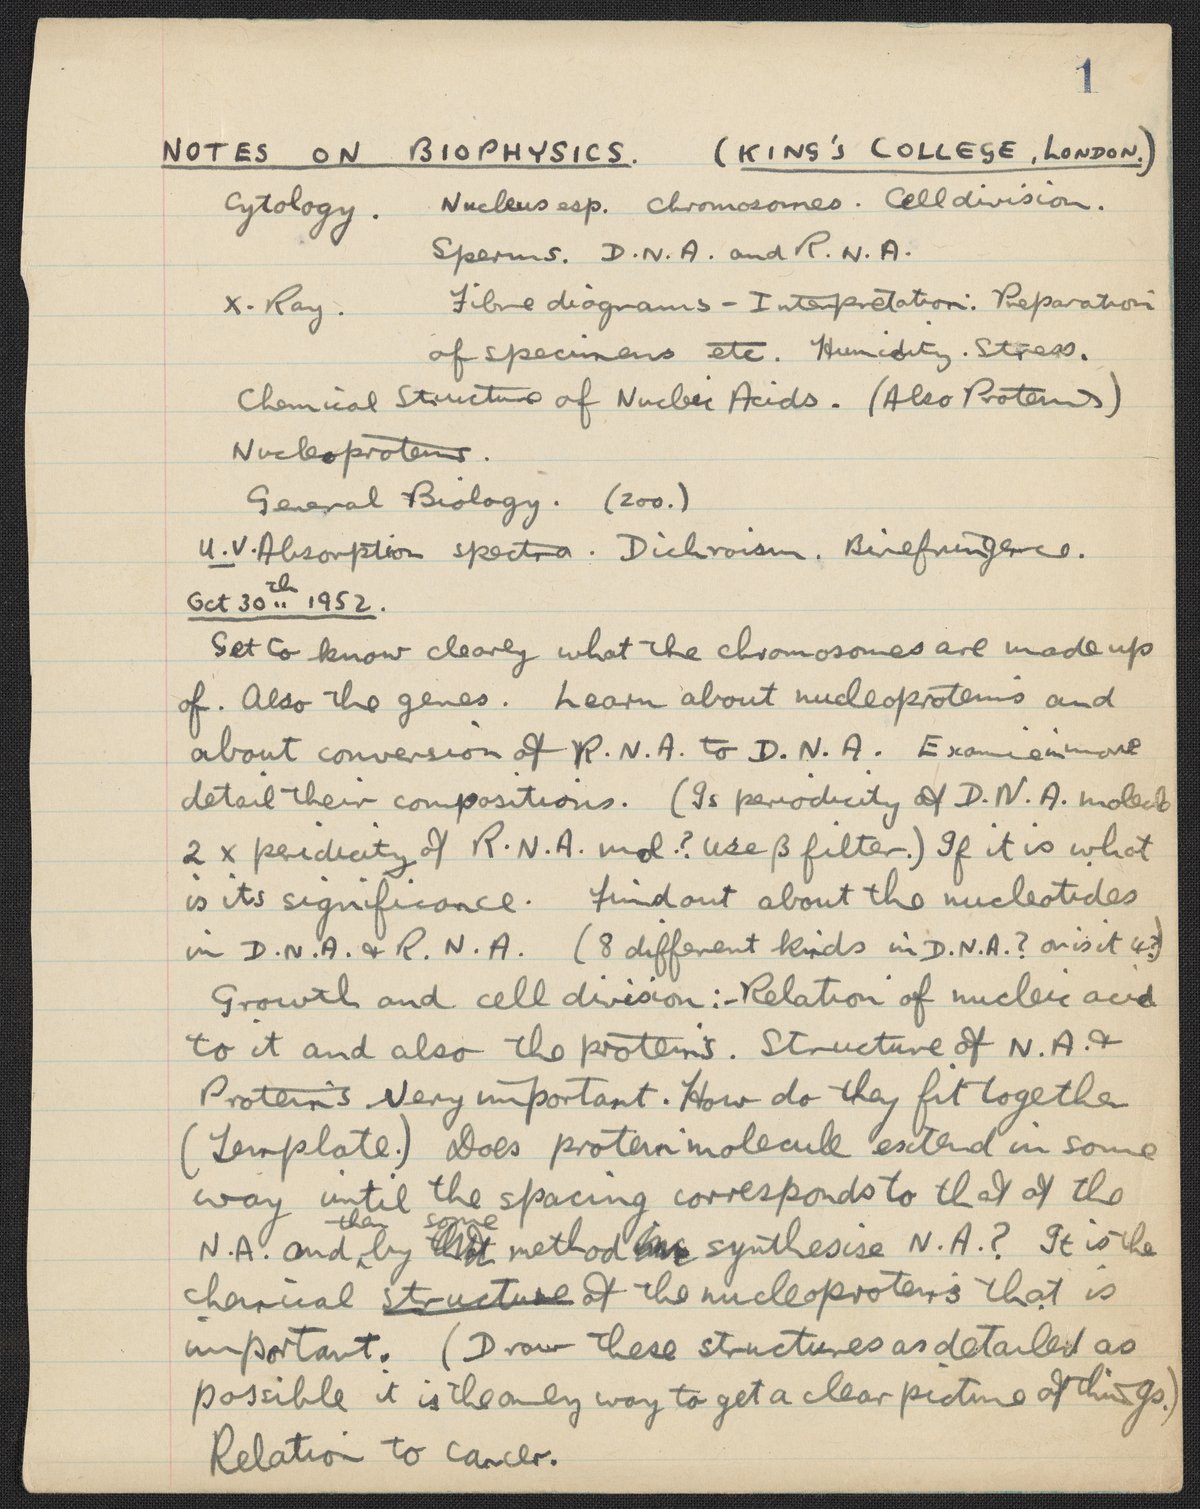 1
NOTES ON BIOPHYSICS. (KING'S COLLEGE, LONDON.)
Cytology. Nucleus esp. chromosomes. Cell division.
Sperms. D.N.A. and R.N.A.
X-Ray. Fibre diagrams - Interpretation: Preparation
of specimens etc. Humidity. Stress.
Chemical Structure of Nucleic Acids. (Also Proteins)
Nucleoproteins.
General Biology. (Zoo.)
U.V. Absorption spectra. Dichroism. Birefringence.
Oct 30th 1952.
Get to know clearly what the chromosomes are made up
of. Also the genes. Learn about nucleoproteins and
about conversion of R.N.A. to D.N.A. Examine in more
detail their compositions. (Is periodicity of D.N.A. molecule
2 x peridicity of R.N.A. mol.? Use β filter.) If it is what
is its significance. Find out about the nucleotides
in D.N.A. & R.N.A. (8 different kinds in D.N.A.? or is it 4?)
Growth and cell division:- Relation of nucleic acid
to it and also the proteins. Structure of N.A. &
Proteins very important. How do they fit together
(Template.) Does protein molecule extend in some
way until the spacing corresponds to that of the
N.A. and then by some method synthesise N.A.? It is the
chemical structure of the nucleoproteins that is
important. (Draw these structures as detailed as
possible it is the only way to get a clear picture of things.)
Relation to cancer.